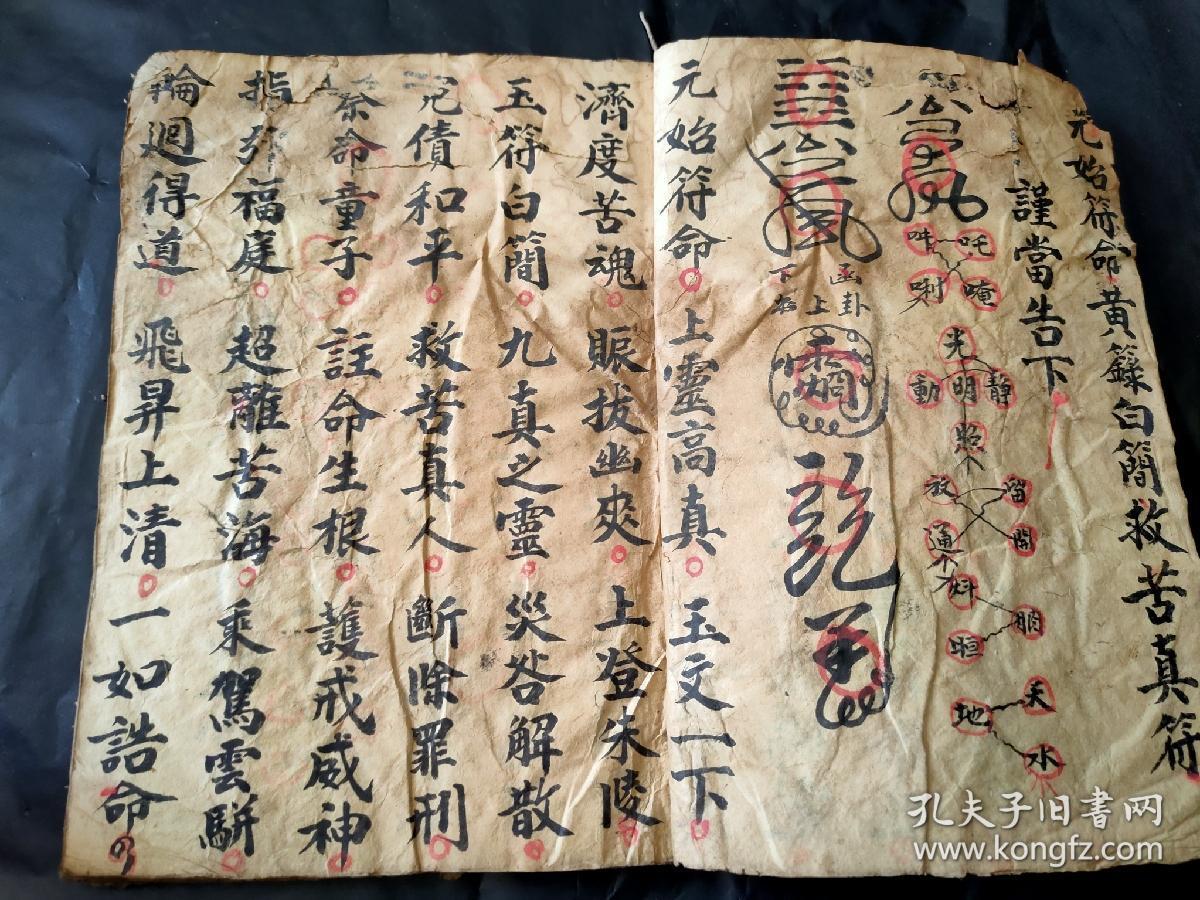 元始符命黄籙白簡救苦真符
謹當告下
吒
唵
唎
光
動明靜
照
通
開
明
天
地
水
函卦
上
下
元始符命上靈高真玉文一下
濟度苦魂賑拔幽爽上登朱陵
玉符白簡九真之靈災咎解散
冤債和平救苦真人斷除罪刑
奈命童子註命生根護戒威神
指引福庭超離苦海乘駕雲駢
輪迴得道飛昇上清一如誥命
孔夫子旧书网
www.kongfz.com